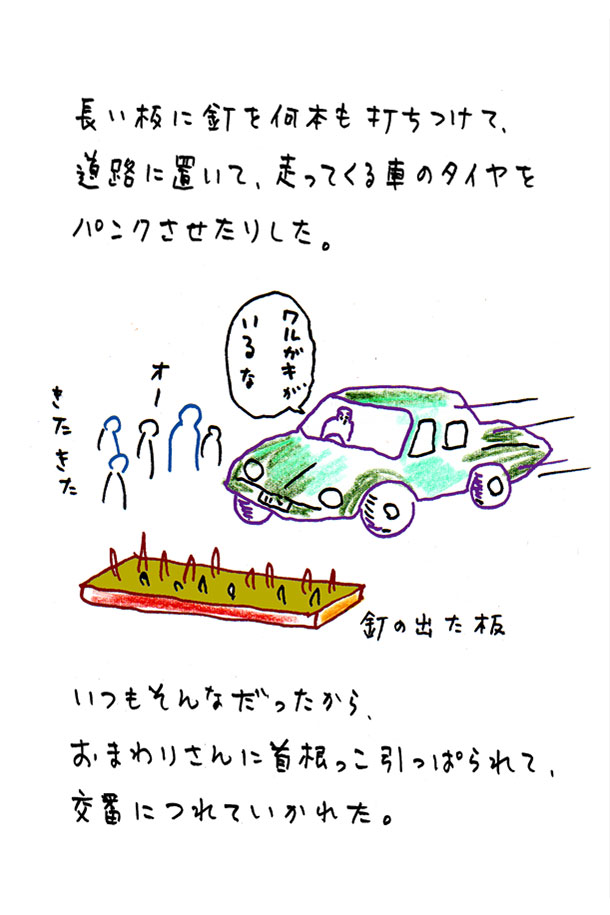 長い板に釘を何本も打ちつけて、
道路に置いて、走ってくる車のタイヤを
パンクさせたりした。
ワルガキが
いるな
オー
きたきた
釘の出た板
いつもそんなだったから、
おまわりさんに首根っこ引っぱられて、
交番につれていかれた。